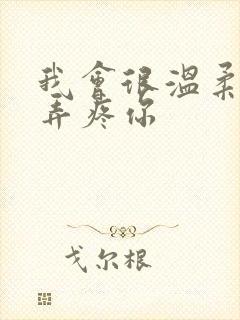 我會很溫柔
弄疼你
戈尔根